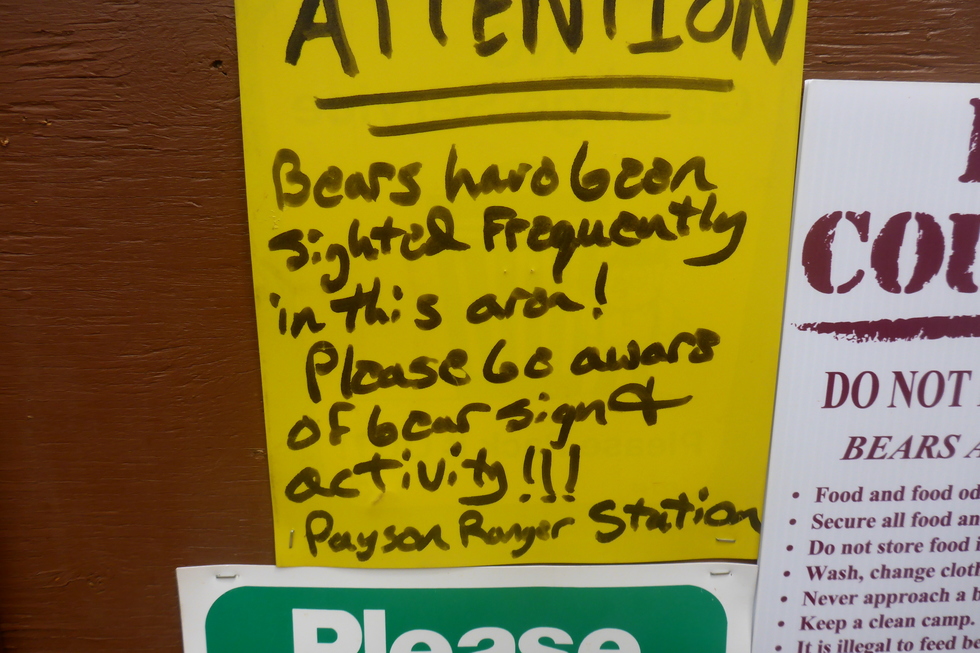 ATTENTION
Bears have been
sighted Frequently
in this area!
Please be aware
of bear sign &
activity!!!
Payson Ranger Station
Please
COU
DO NOT
BEARS A
• Food and food od
• Secure all food an
• Do not store food i
• Wash, change cloth
• Never approach a b
• Keep a clean camp.
• It is illegal to feed be